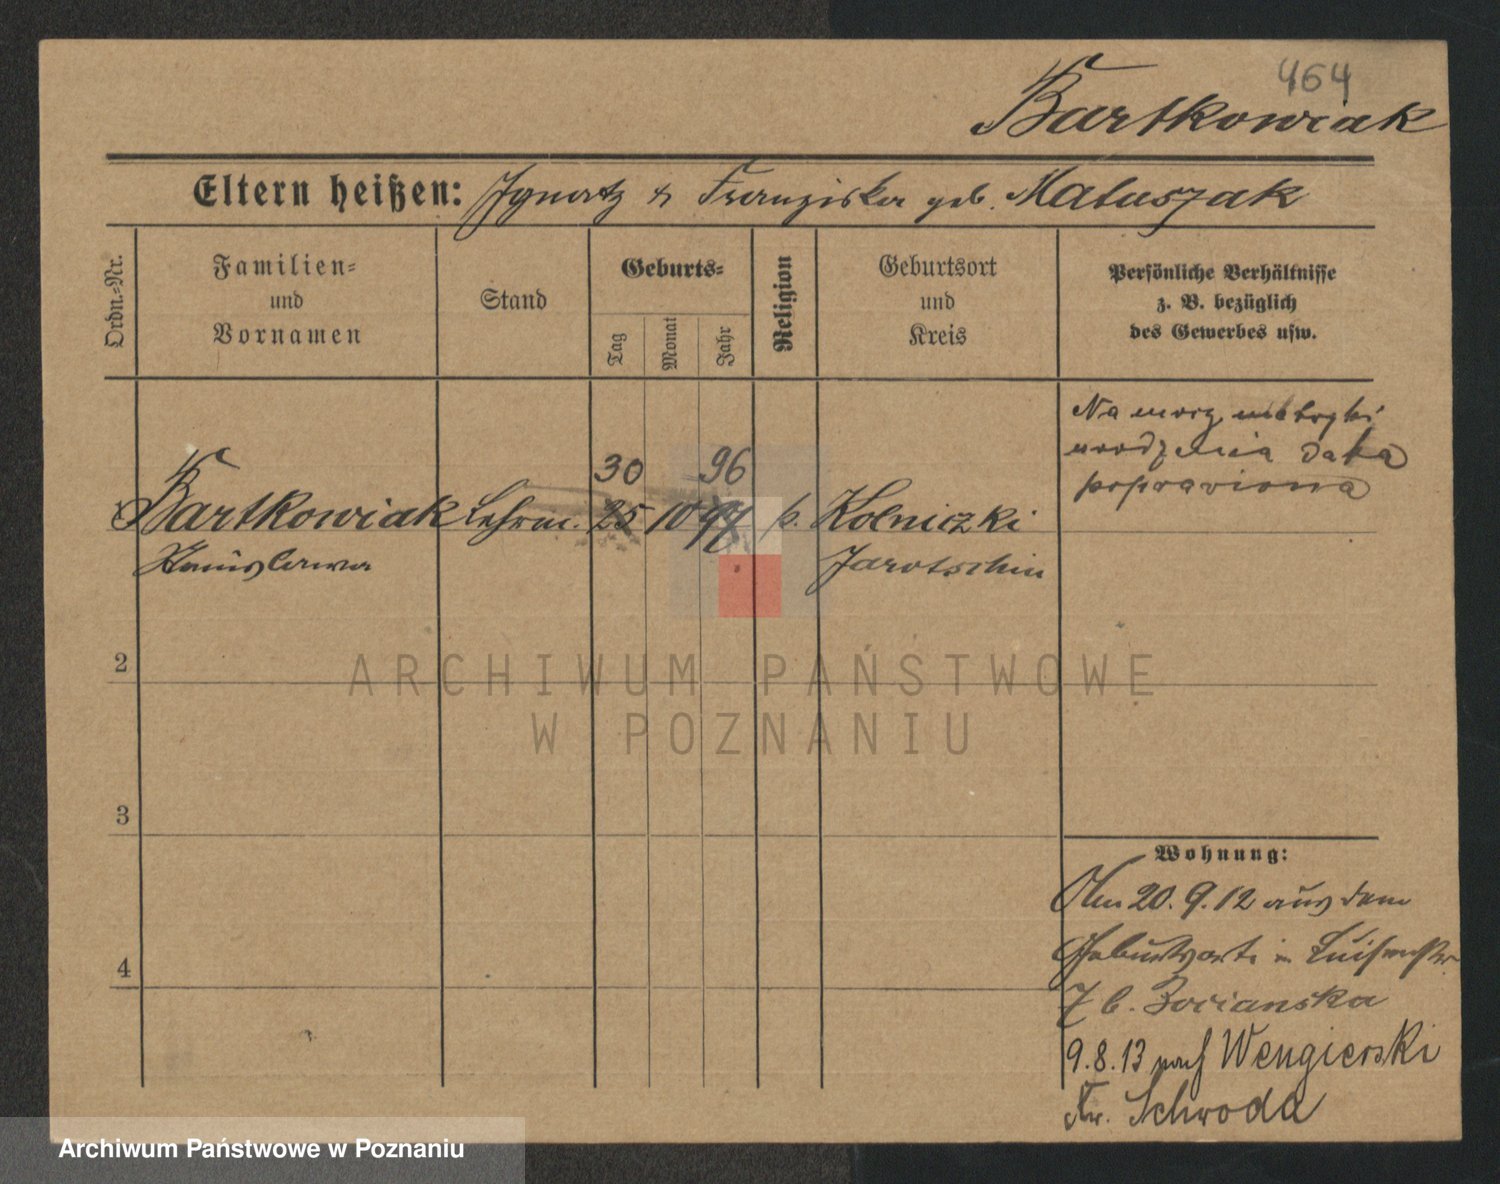 464
Bartkowiak
Eltern heißen: Ignatz & Franziska geb. Matuszak
Ordn.-Nr.
Familien-
und
Vornamen
Stand
Geburts-
Tag
Monat
Jahr
Religion
Geburtsort
und
Kreis
Persönliche Verhältnisse
z. B. bezüglich
des Gewerbes usw.
Na mocy metryki
urodzenia data
poprawiona
30 96
Bartkowiak Lehrm. 25 10 97 k. Kolniczki
Stanislawa Jarotschin
2
3
4
Wohnung:
Am 20.9.12 aus dem
Geburtsorte in Luisenstr.
7 b. Bocianska
9.8.13 nach Wengierski
Kr. Schroda
ARCHIWUM PAŃSTWOWE
W POZNANIU
Archiwum Państwowe w Poznaniu